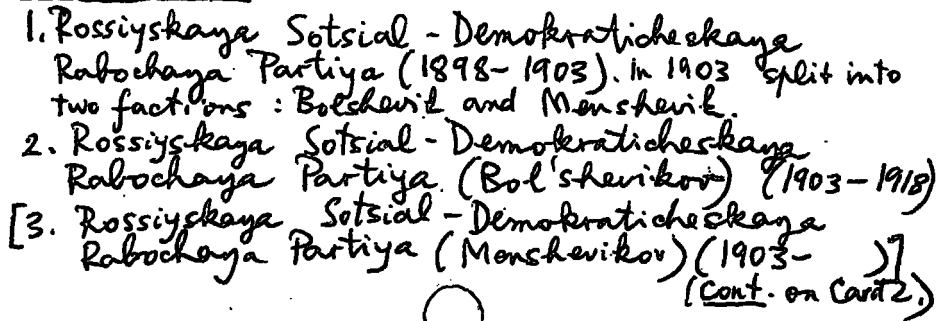 1. Rossiyskaya Sotsial-Demokraticheskaya
Rabochaya Partiya (1898-1903). In 1903 split into
two factions: Bolshevik and Menshevik.
2. Rossiyskaya Sotsial-Demokraticheskaya
Rabochaya Partiya. (Bol'shevikov) (1903-1918)
[3. Rossiyskaya Sotsial-Demokraticheskaya
Rabochaya Partiya (Menshevikov) (1903-     )]
(Cont. on Card 2.)